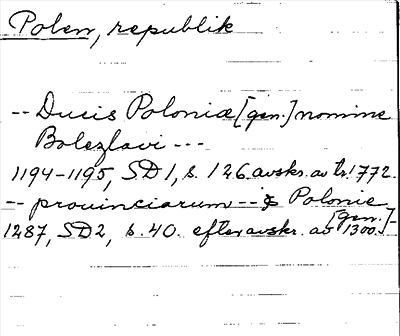 Polen, republik
-- Ducis Poloniæ [gen.] nomine
Bolezlavi ---
1194-1195, SD 1, s. 126. avskr. av tr. 1772.
-- prouinciarum -- & Polonie [gen.] -
1287, SD 2, s. 40. efter avskr. av 1300.